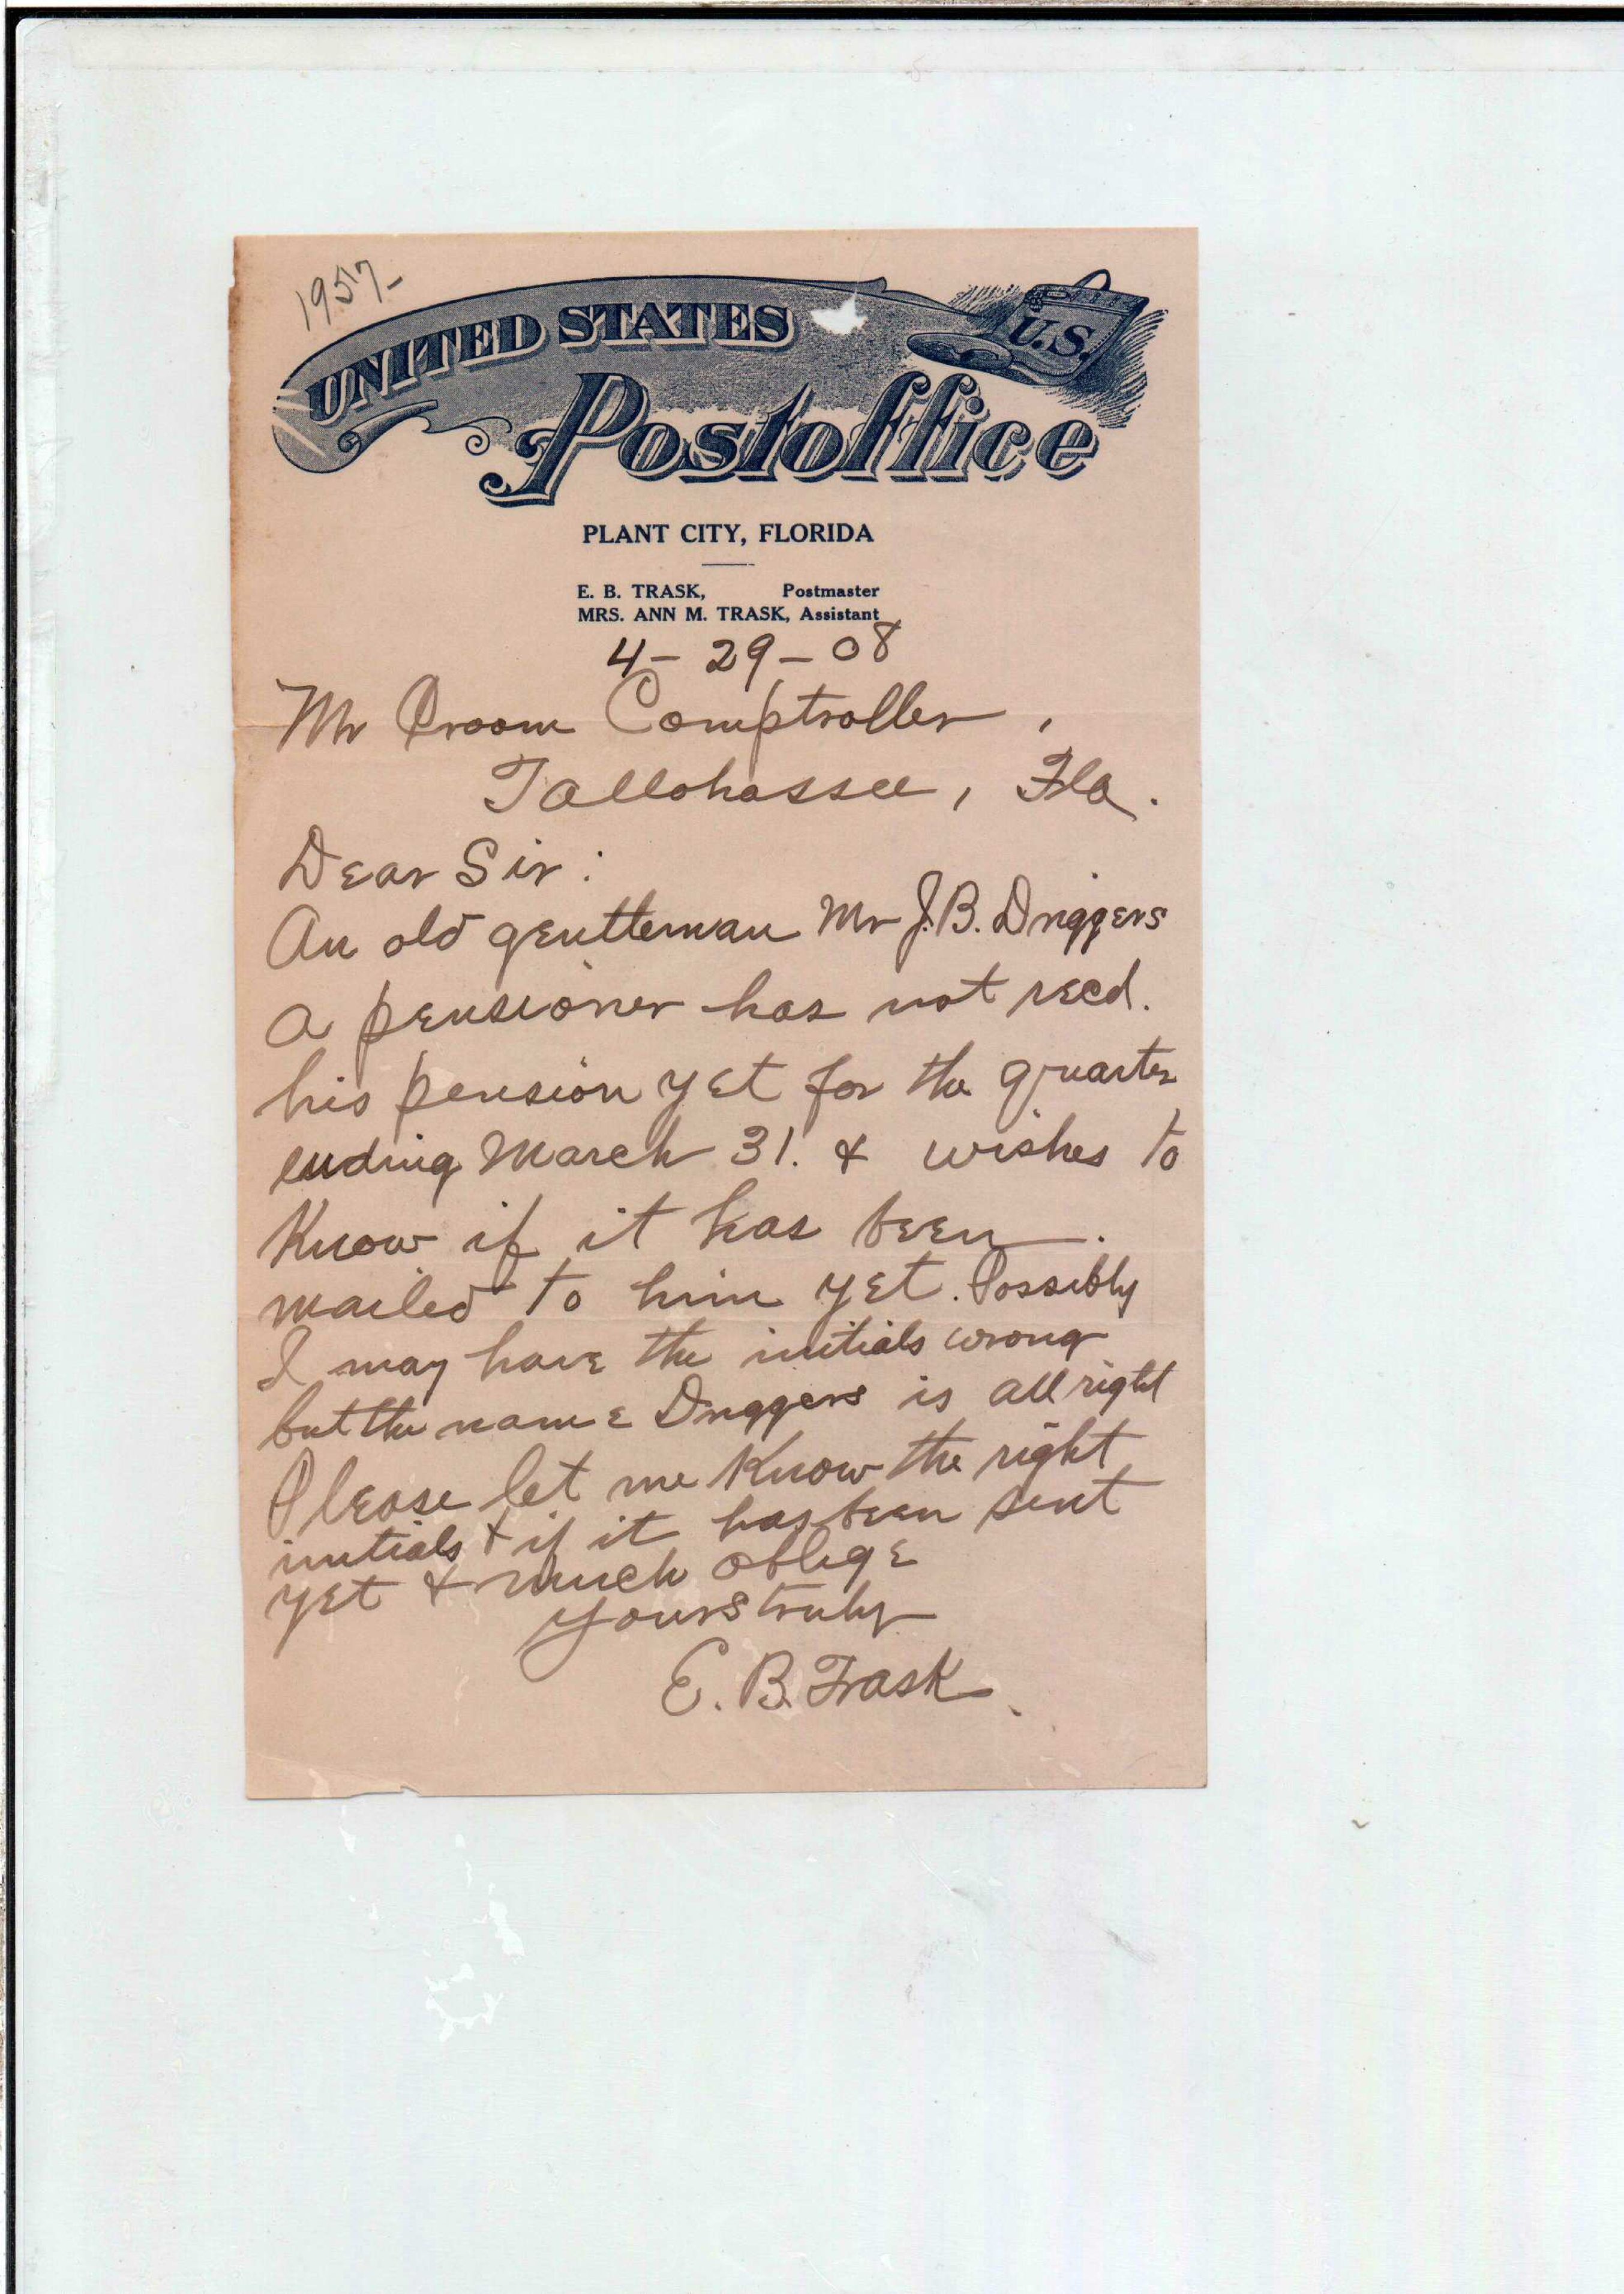 1957-
UNITED STATES
U.S.
Postoffice
PLANT CITY, FLORIDA
E. B. TRASK, Postmaster
MRS. ANN M. TRASK, Assistant
4-29-08
Mr Croom Comptroller,
Tallahassee, Fla.
Dear Sir:
An old gentleman Mr J.B. Driggers
a pensioner has not recd.
his pension yet for the quarter
ending March 31. & wishes to
Know if it has been
mailed to him yet. Possibly
I may have the initials wrong
but the name Driggers is all right
Please let me Know the right
initials & if it has been sent
yet & much oblige
yours truly
E. B. Trask